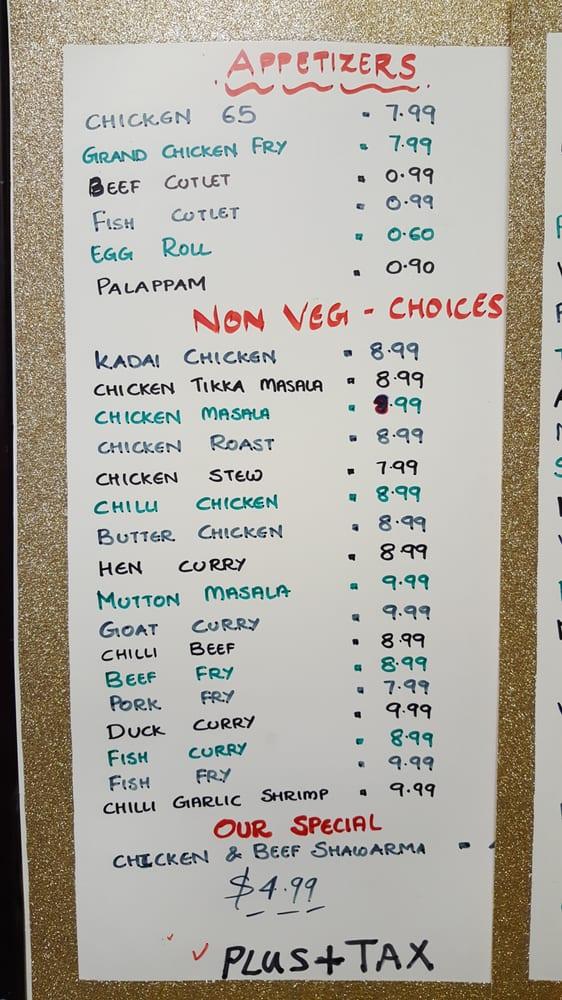 APPETIZERS
CHICKEN 65 - 7.99
GRAND CHICKEN FRY - 7.99
BEEF CUTLET - 0.99
FISH CUTLET - 0.99
EGG ROLL - 0.60
PALAPPAM - 0.90
NON VEG - CHOICES
KADAI CHICKEN - 8.99
CHICKEN TIKKA MASALA - 8.99
CHICKEN MASALA - 8.99
CHICKEN ROAST - 8.99
CHICKEN STEW - 7.99
CHILLI CHICKEN - 8.99
BUTTER CHICKEN - 8.99
HEN CURRY - 8.99
MUTTON MASALA - 9.99
GOAT CURRY - 9.99
CHILLI BEEF - 8.99
BEEF FRY - 8.99
PORK FRY - 7.99
DUCK CURRY - 9.99
FISH CURRY - 8.99
FISH FRY - 9.99
CHILLI GARLIC SHRIMP - 9.99
OUR SPECIAL
CHICKEN & BEEF SHAWARMA -
$4.99
PLUS+TAX